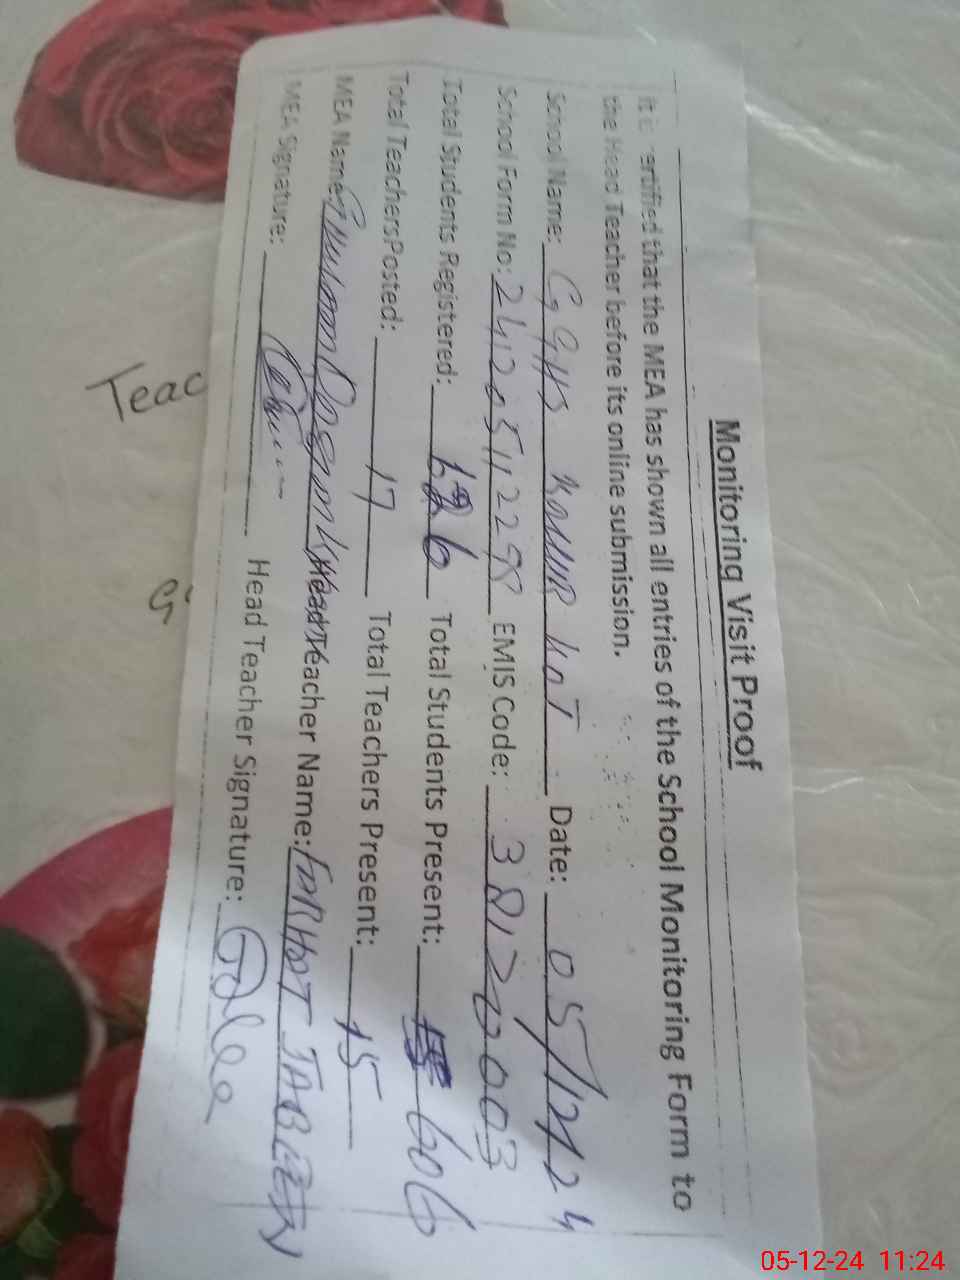 Monitoring Visit Proof
It is certified that the MEA has shown all entries of the School Monitoring Form to
the Head Teacher before its online submission.
School Name: GGHS KOT Date: 05/12/24
School Form No: EMIS Code: 38120003
Total Students Registered: Total Students Present: 606
Total Teachers Posted: 17 Total Teachers Present: 15
MEA Name: Head Teacher Name: FARHAT
MEA Signature: Head Teacher Signature:
Teac
05-12-24 11:24